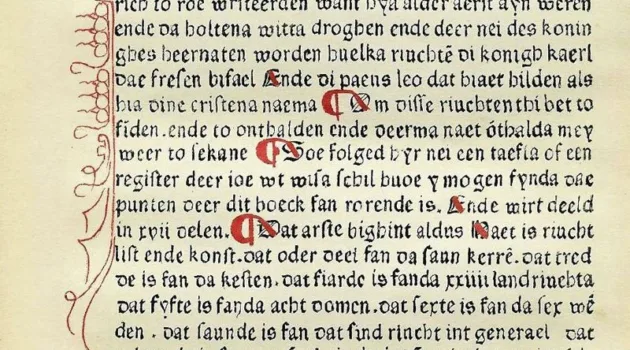 rich to roe writeerden want hya alder aerst ayn weren
ende da holtena witta droghen ende deer nei des konin
ghes heernaten worden huelka riuchtē di konigh kaerl
dae fresen bifael Ende di paeus leo dat hiaet hilden als
hia dine cristena naema ¶ Om disse riuchten thi bet to
fiden. ende to onthalden ende deerma naet ōthalda mey
weer to sekane ¶ Soe folged hyr nei een taefla of een
register deer ioe wt wisa schil huoe y mogen fynda dae
punten deer dit boeck fan rorende is. Ende wirt deeld
in xvii delen. ¶ Dat arste bighint aldus Haet is riucht
list ende konst. dat oder deel fan da saun kerrē. dat tred
de is fan da kesten. dat fiarde is fanda xxiiii landriuchta
dat fyfte is fanda acht domen. dat sexte is fan da sex wē
den. dat saunde is fan dat sind riucht int generael dat